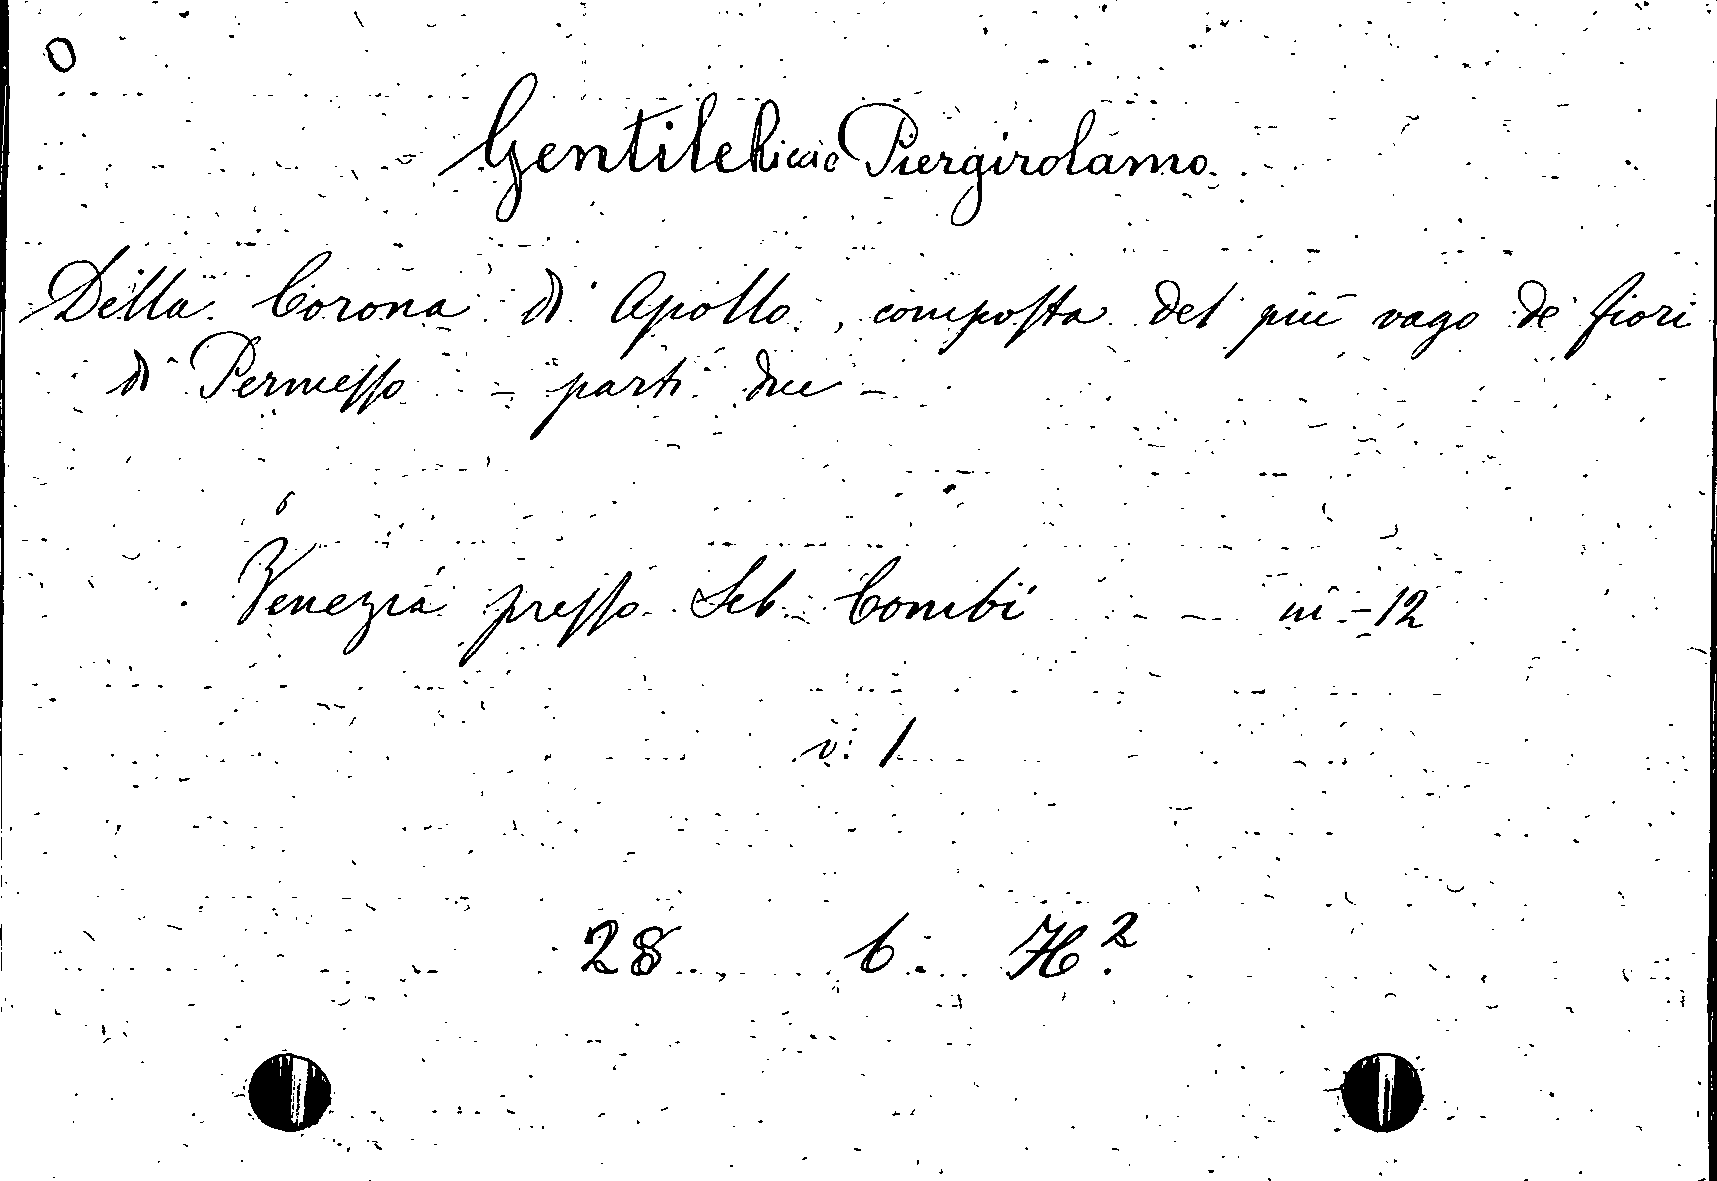 O
Gentile Riccio Piergirolamo.
Della Corona di Apollo, composta del più vago de' fiori
di Permesso - parti due -
Venezia presso Seb. Combi - - in - 12
v. 1
28 b H.²